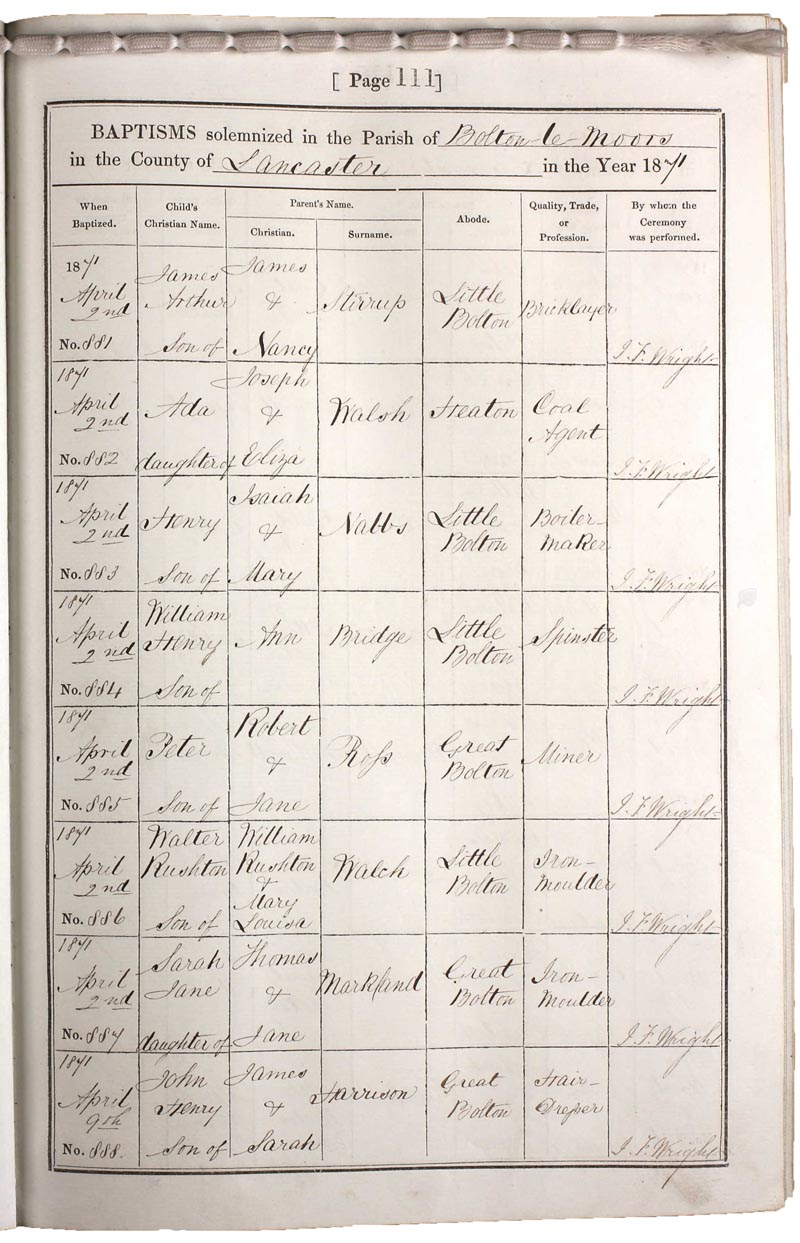 [ Page 111]
BAPTISMS solemnized in the Parish of Bolton-le-Moors
in the County of Lancaster in the Year 1871
When Baptized.
Child's Christian Name.
Parent's Name.
Christian.
Surname.
Abode.
Quality, Trade, or Profession.
By whom the Ceremony was performed.
1871
April
2nd
No. 881
James
Arthur
Son of
James
&
Nancy
Stirrup
Little
Bolton
Bricklayer
I. F. Wright
1871
April
2nd
No. 882
Ada
daughter of
Joseph
&
Eliza
Walsh
Heaton
Coal
Agent
I. F. Wright
1871
April
2nd
No. 883
Henry
Son of
Isaiah
&
Mary
Nabbs
Little
Bolton
Boiler-
Maker
I. F. Wright
1871
April
2nd
No. 884
William
Henry
Son of
Ann
Bridge
Little
Bolton
Spinster
I. F. Wright
1871
April
2nd
No. 885
Peter
Son of
Robert
&
Jane
Ross
Great
Bolton
Miner
I. F. Wright
1871
April
2nd
No. 886
Walter
Rushton
Son of
William
Rushton
&
Mary
Louisa
Walch
Little
Bolton
Iron-
Moulder
I. F. Wright
1871
April
2nd
No. 887
Sarah
Jane
daughter of
Thomas
&
Jane
Markland
Great
Bolton
Iron-
Moulder
I. F. Wright
1871
April
9th
No. 888.
John
Henry
Son of
James
&
Sarah
Harrison
Great
Bolton
Hair-
Dresser
I. F. Wright